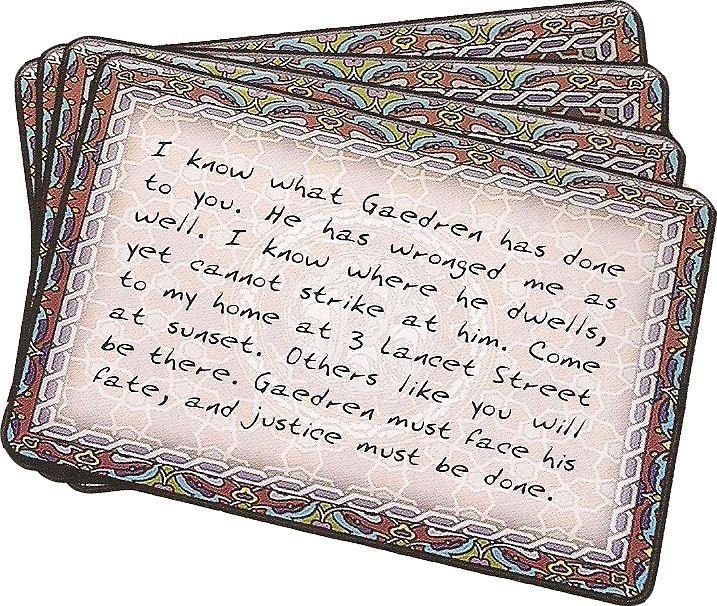 I know what Gaedren has done
to you. He has wronged me as
well. I know where he dwells,
yet cannot strike at him. Come
to my home at 3 Lancet Street
at sunset. Others like you will
be there. Gaedren must face his
fate, and justice must be done.